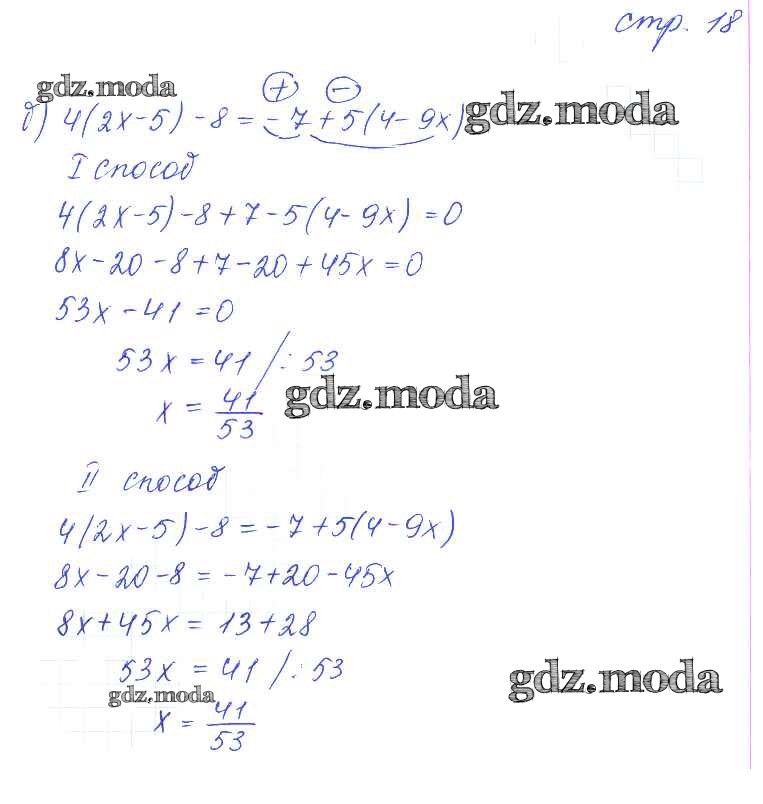 стр. 18
gdz.moda
+ −
б) 4(2x-5)-8 = -7+5(4-9x) gdz.moda
I способ
4(2x-5)-8+7-5(4-9x)=0
8x-20-8+7-20+45x=0
53x-41=0
53x=41 /:53
x = 41/53 gdz.moda
II способ
4(2x-5)-8=-7+5(4-9x)
8x-20-8=-7+20-45x
8x+45x=13+28
53x=41 /:53 gdz.moda
gdz.moda
x = 41/53